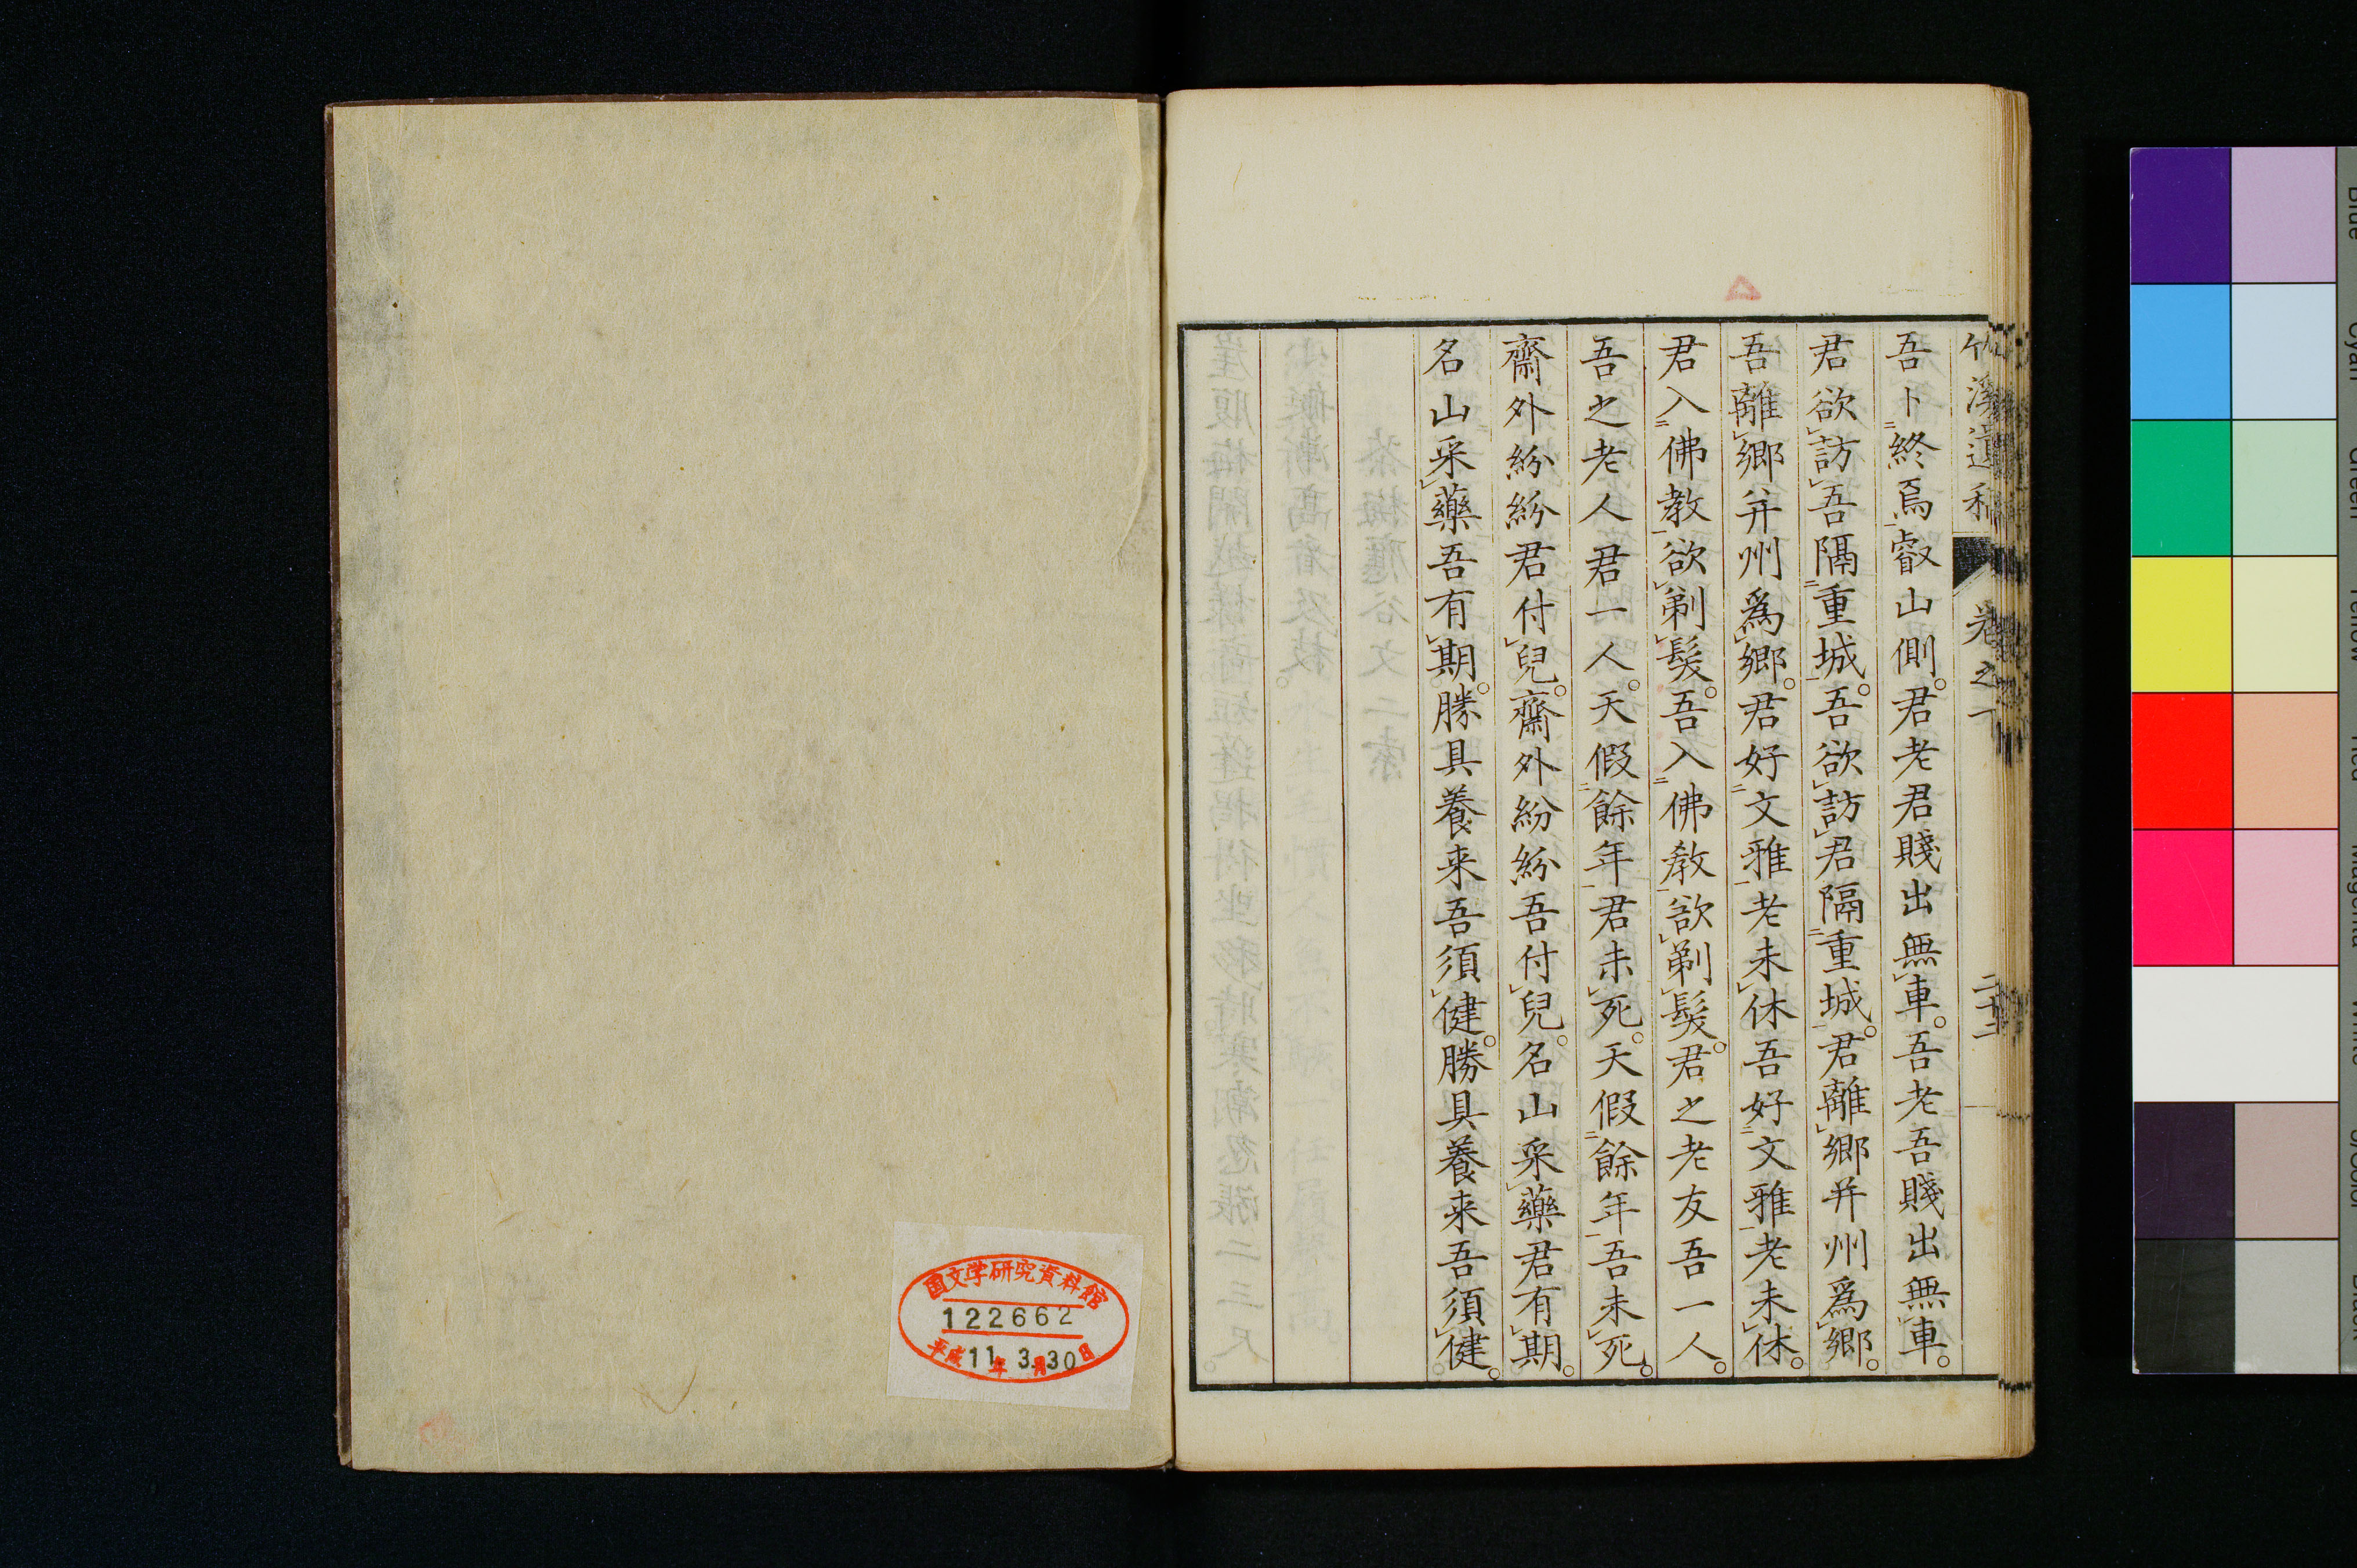 竹溪遺稿 卷之一 二十二
吾卜終焉叡山側。君老君賤出無車。吾老吾賤出無車。
君欲訪吾隔重城。吾欲訪君隔重城。君離鄉并州爲鄉。
吾離鄉并州爲鄉。君好文雅老未休吾好文雅老未休。
君入佛教欲剃髮。吾入佛教欲剃髮。君之老友吾一人。
吾之老人君一人。天假餘年君未死。天假餘年吾未死。
齋外紛紛君付兒。齋外紛紛吾付兒。名山采藥君有期。
名山采藥吾有期。勝具養来吾須健。勝具養来吾須健。
国文学研究資料館
122662
平成11年3月30日
Blue
Cyan
Green
Yellow
Red
Magenta
White
3/Color
Black